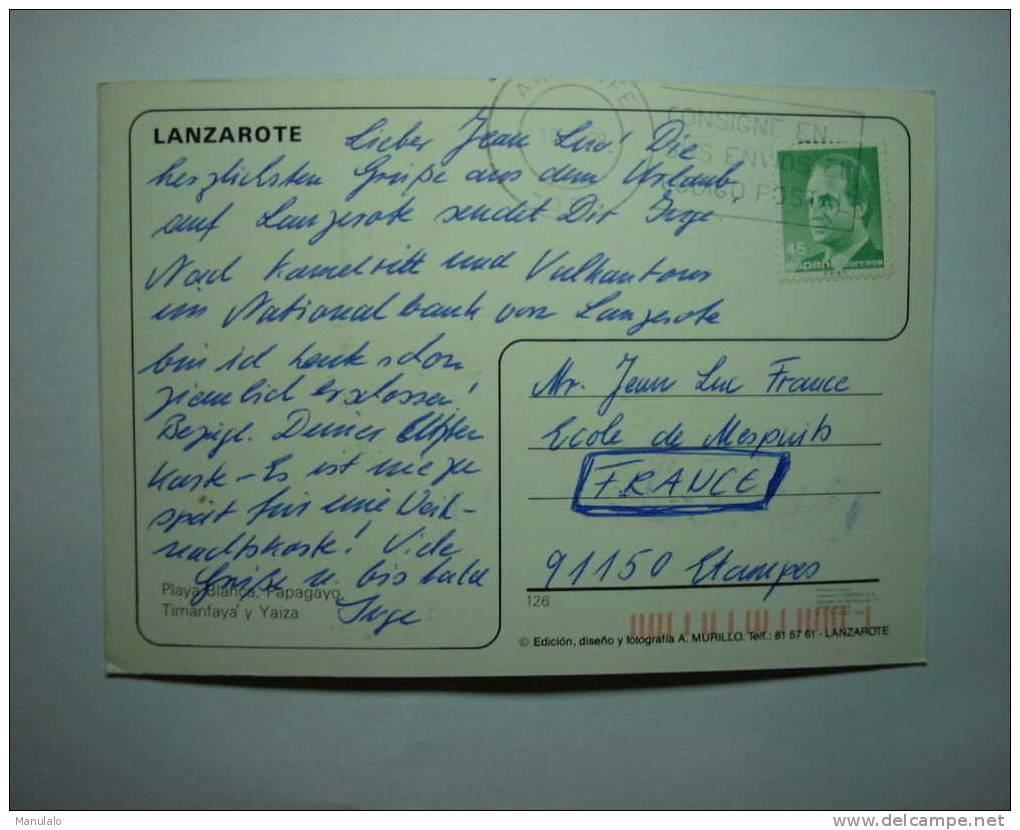 LANZAROTE
Lieber Jean Luc! Die
herzlichsten Grüße aus dem Urlaub
auf Lanzerote sendet Dir Inge.
Nach Kamelritt und Vulkantour
im Nationalbank von Lanzerote
bin ich heute schon
ziemlich erschossen!
Bezügl. Deiner
Karte - Es ist nie zu
spät für eine Weih-
nachtskarte! Viele
Grüße u. bis bald
Inge
Playa Blanca, Papagayo,
Timanfaya y Yaiza
CONSIGNE EN
SUS ENVIOS EL
CODIGO POSTAL
45
ESPAÑA CORREOS
Mr. Jean Luc France
Ecole de
FRANCE
91150 Etampes
126
© Edición, diseño y fotografía A. MURILLO. Telf.: 81 57 61 - LANZAROTE
Manulalo
www.delcampe.net